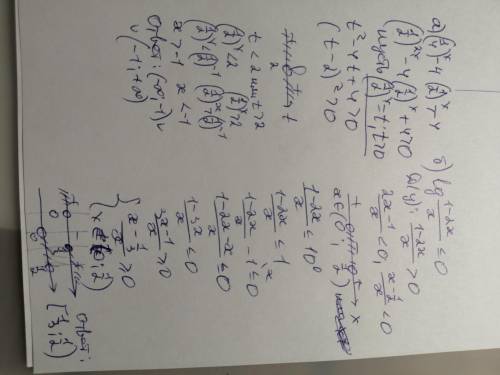 а) (1/4)^x - 4·(1/2)^x > -4
(1/2)^2x - 4(1/2)^x + 4 > 0
пусть (1/2)^x = t, t>0
t² - 4t + 4 > 0
(t - 2)² > 0
t < 2 или t > 2
(1/2)^x < 2 (1/2)^x > 2
(1/2)^x < (1/2)^-1 (1/2)^x > (1/2)^-1
x > -1 x < -1
Ответ: (-∞; -1) ∪
∪ (-1; +∞)
б) lg (1-2x)/x ≤ 0
ОДЗ: (1-2x)/x > 0
(2x-1)/x < 0, (x-1/2)/x < 0
x ∈ (0; 1/2)
(1-2x)/x ≤ 10⁰
(1-2x)/x ≤ 1
(1-2x)/x - 1 ≤ 0
(1-2x-x)/x ≤ 0
(1-3x)/x ≤ 0
(3x-1)/x ≥ 0
{ (x-1/3)/x ≥ 0
x ∈ (0; 1/2)
Ответ:
[1/3; 1/2)